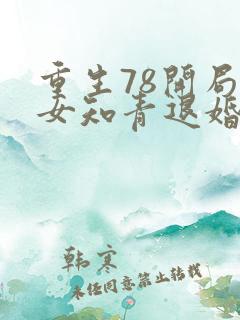 重生78开局
女知青退婚
韩寒
未经同意禁止转载